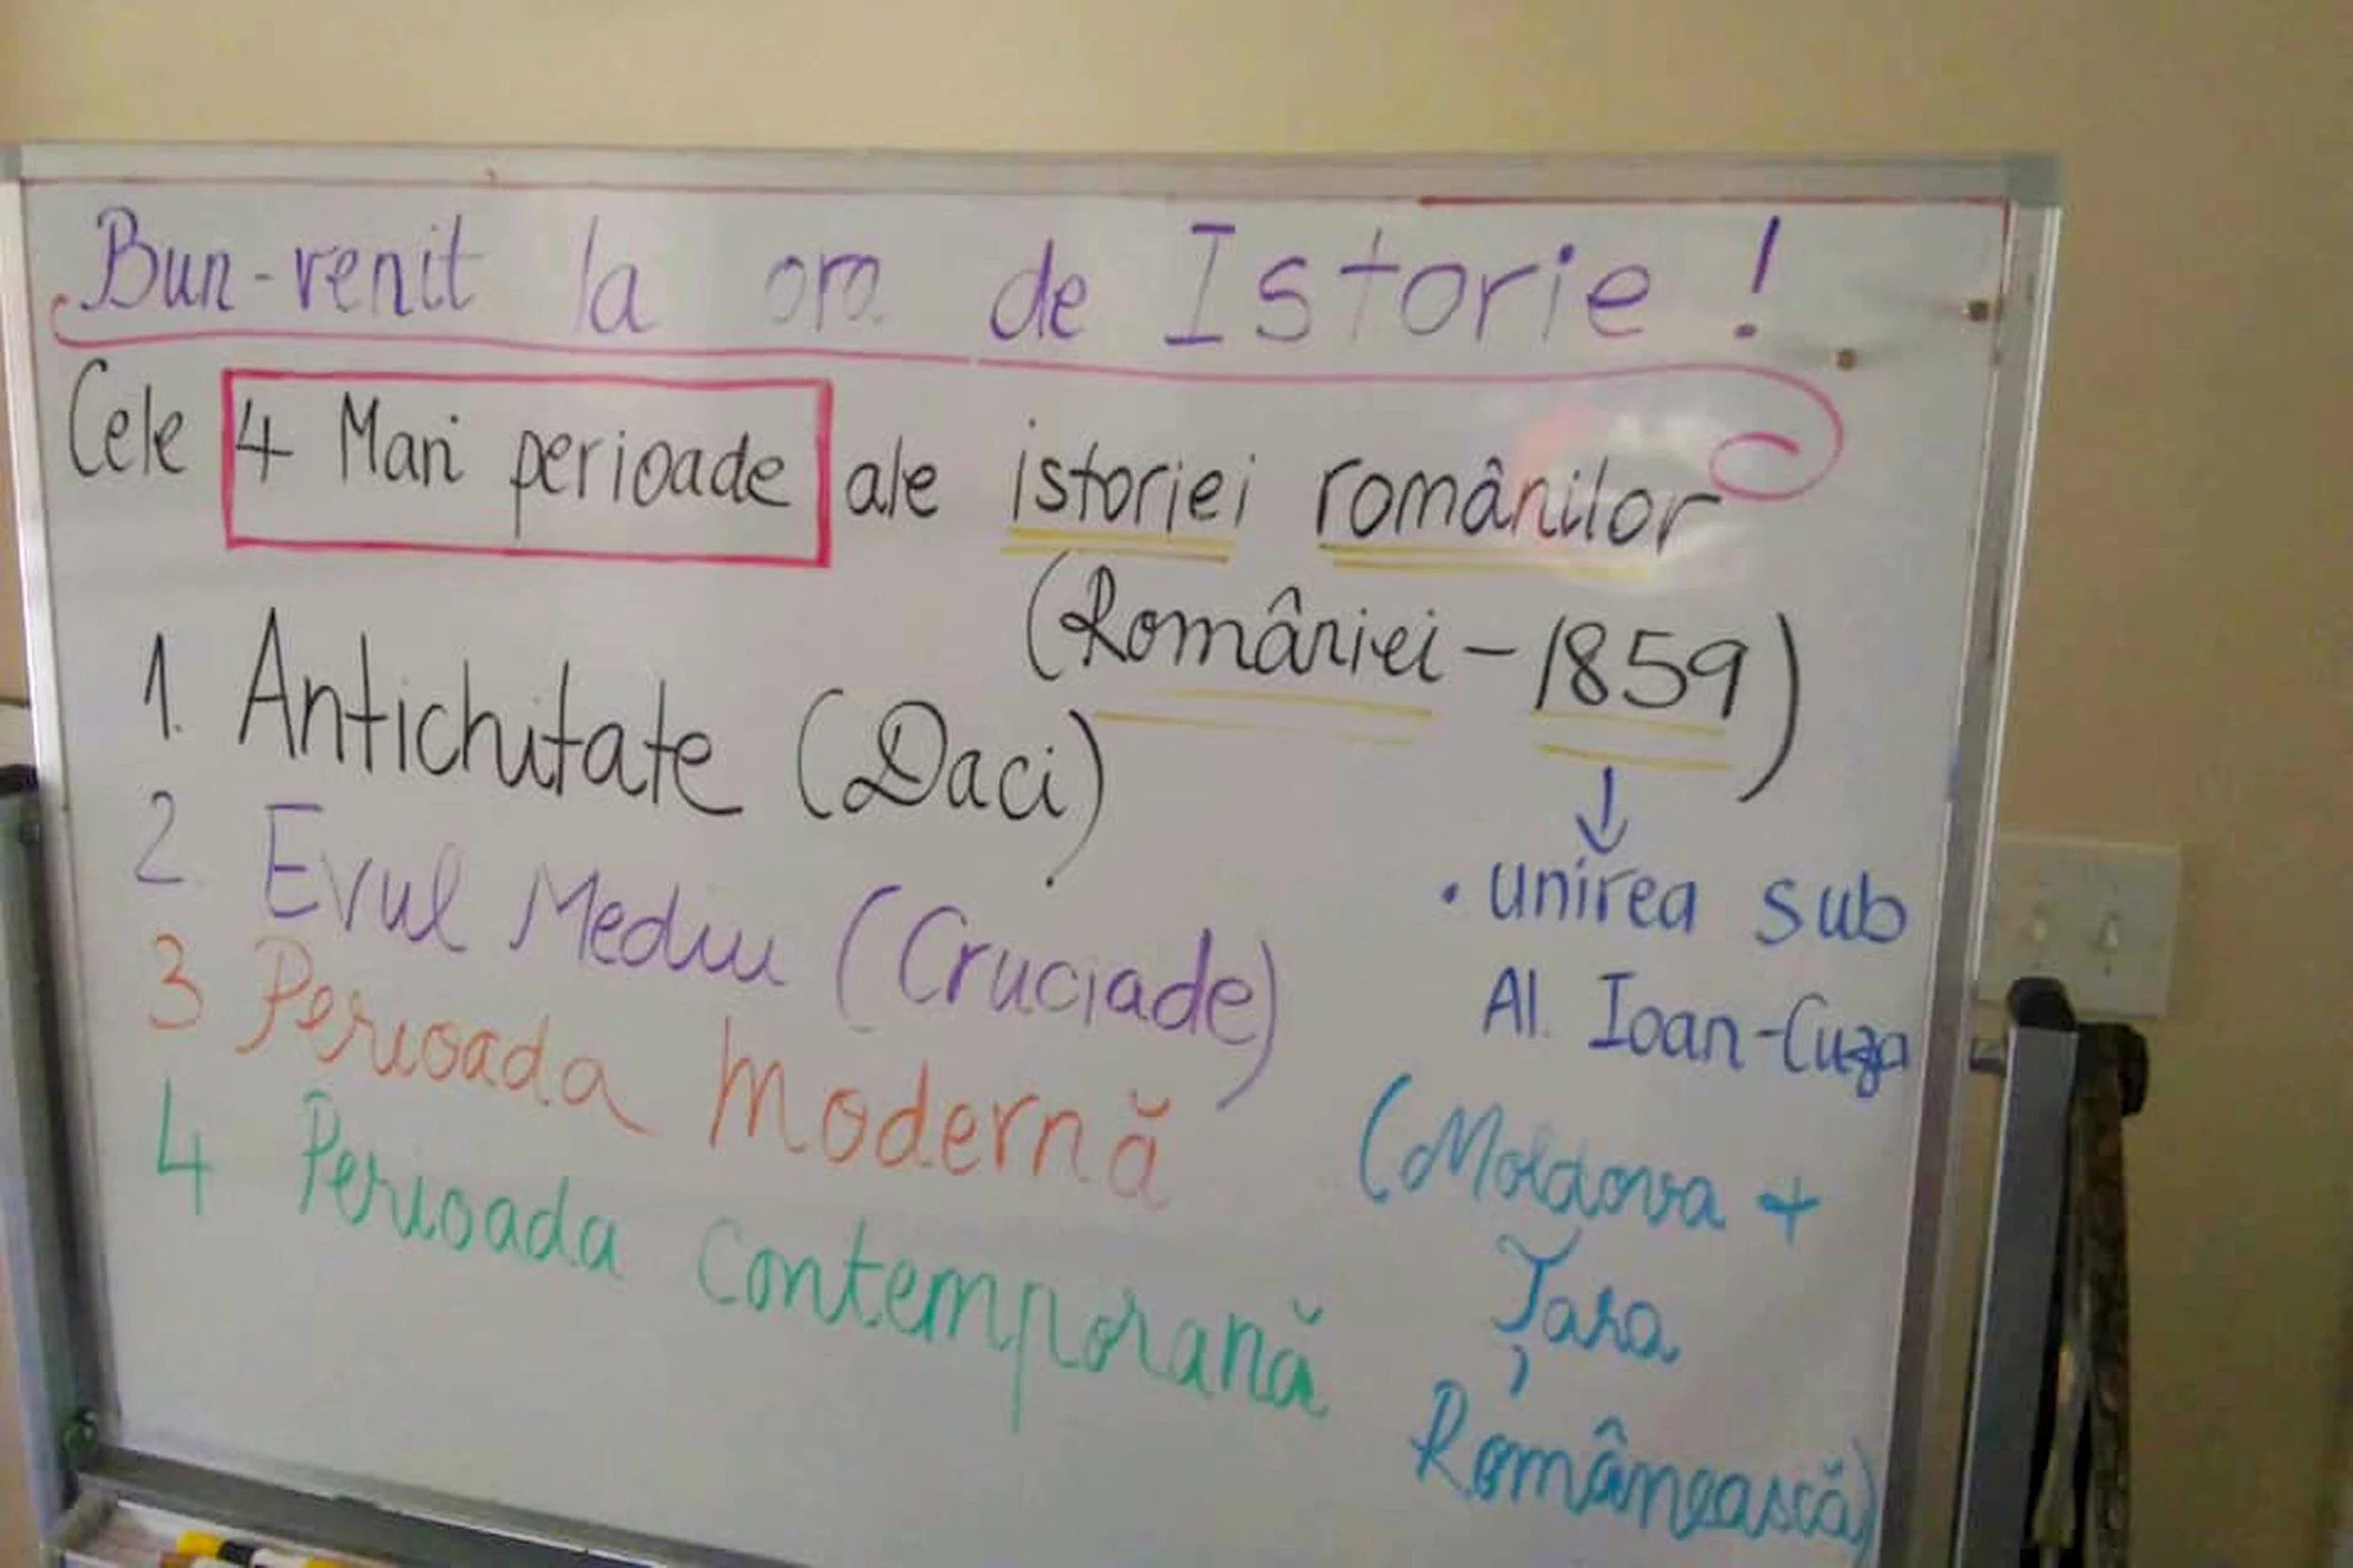 Bun-venit la ora de Istorie!
Cele 4 Mari perioade ale istoriei românilor
(României - 1859)
1. Antichitate (Daci)
2 Evul Mediu (Cruciade)
3 Perioada Modernă
4 Perioada contemporană
• unirea sub
Al. Ioan-Cuza
(Moldova +
Țara
Românească)